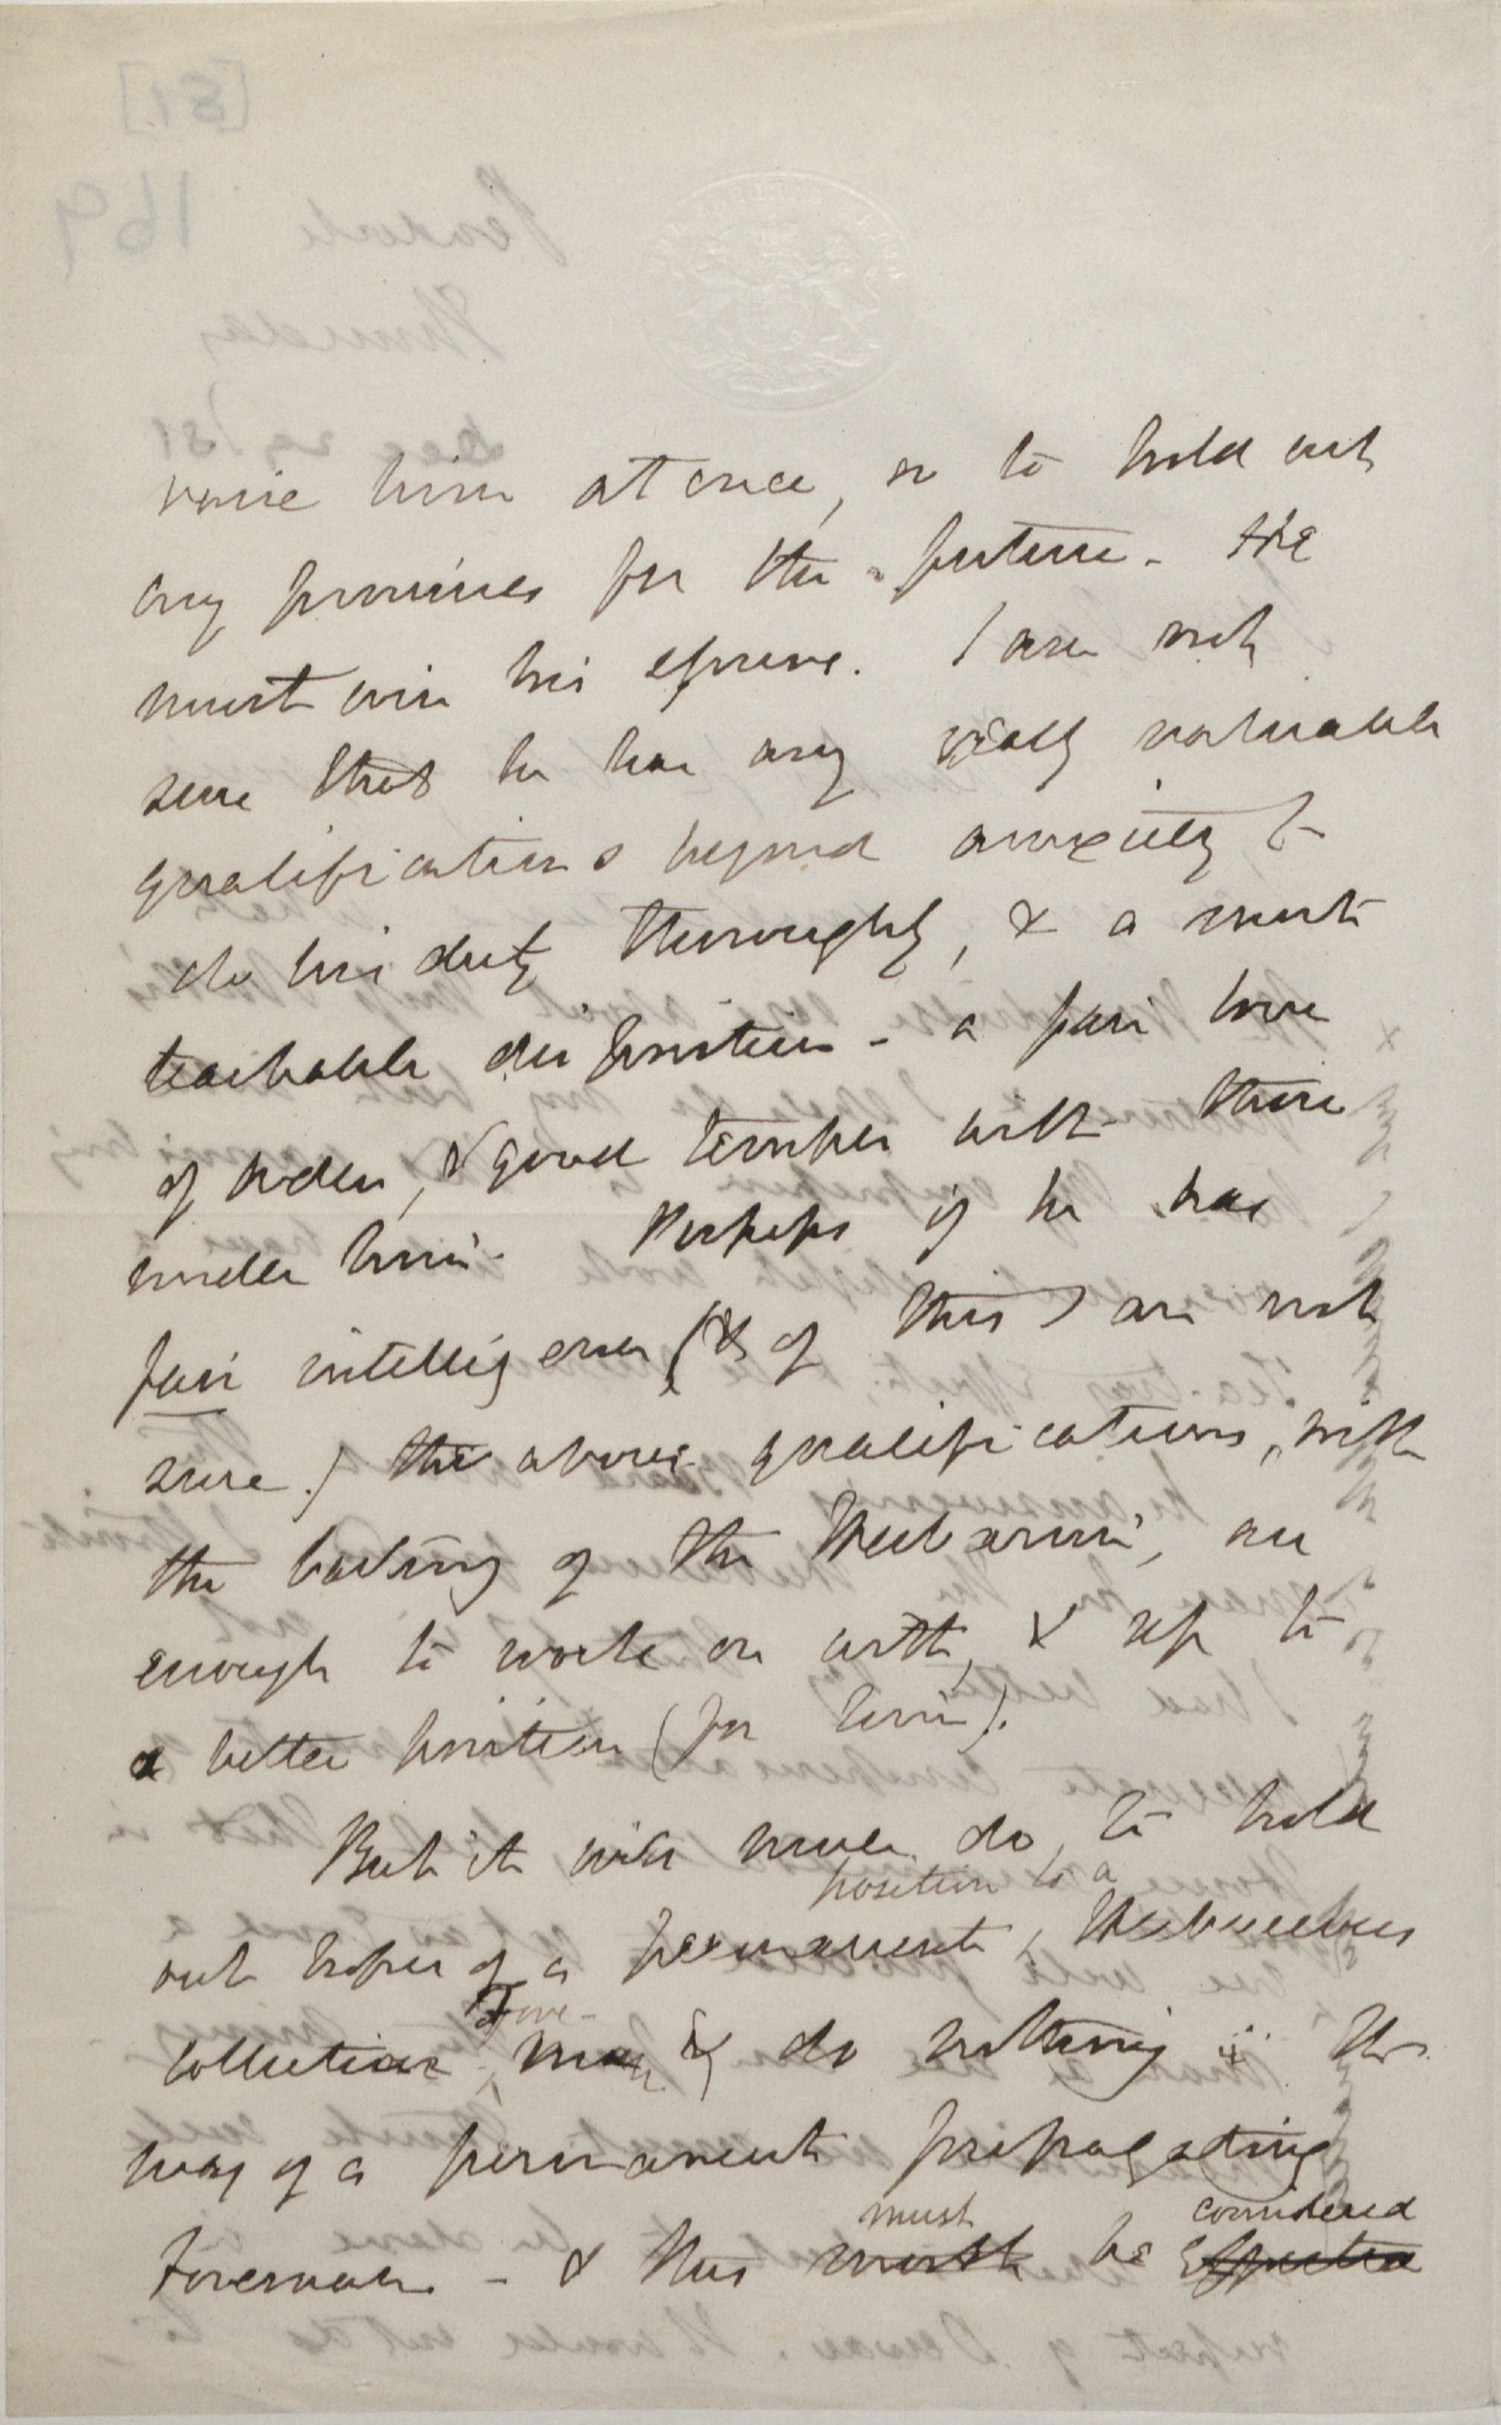 raise him at once, or to hold out
any promises for the future. He
must win his spurs. I am not
sure that he has any really valuable
qualifications beyond anxiety to
do his duty thoroughly, & a most
teachable disposition - a fair love
of order, & good temper with those
under him. Perhaps if he has
fair intelligence (& of this I am not
sure.) the above qualifications, with
the backing of the Herbarium, are
enough to work on with, & up to
a better position (for him).
But it will never do, to hold
position to a
out hopes of a permanent, Herbaceous
Fore-
collection, man & do nothing in the
way of a permanent propagating
must considered
Foreman - & this must be effected